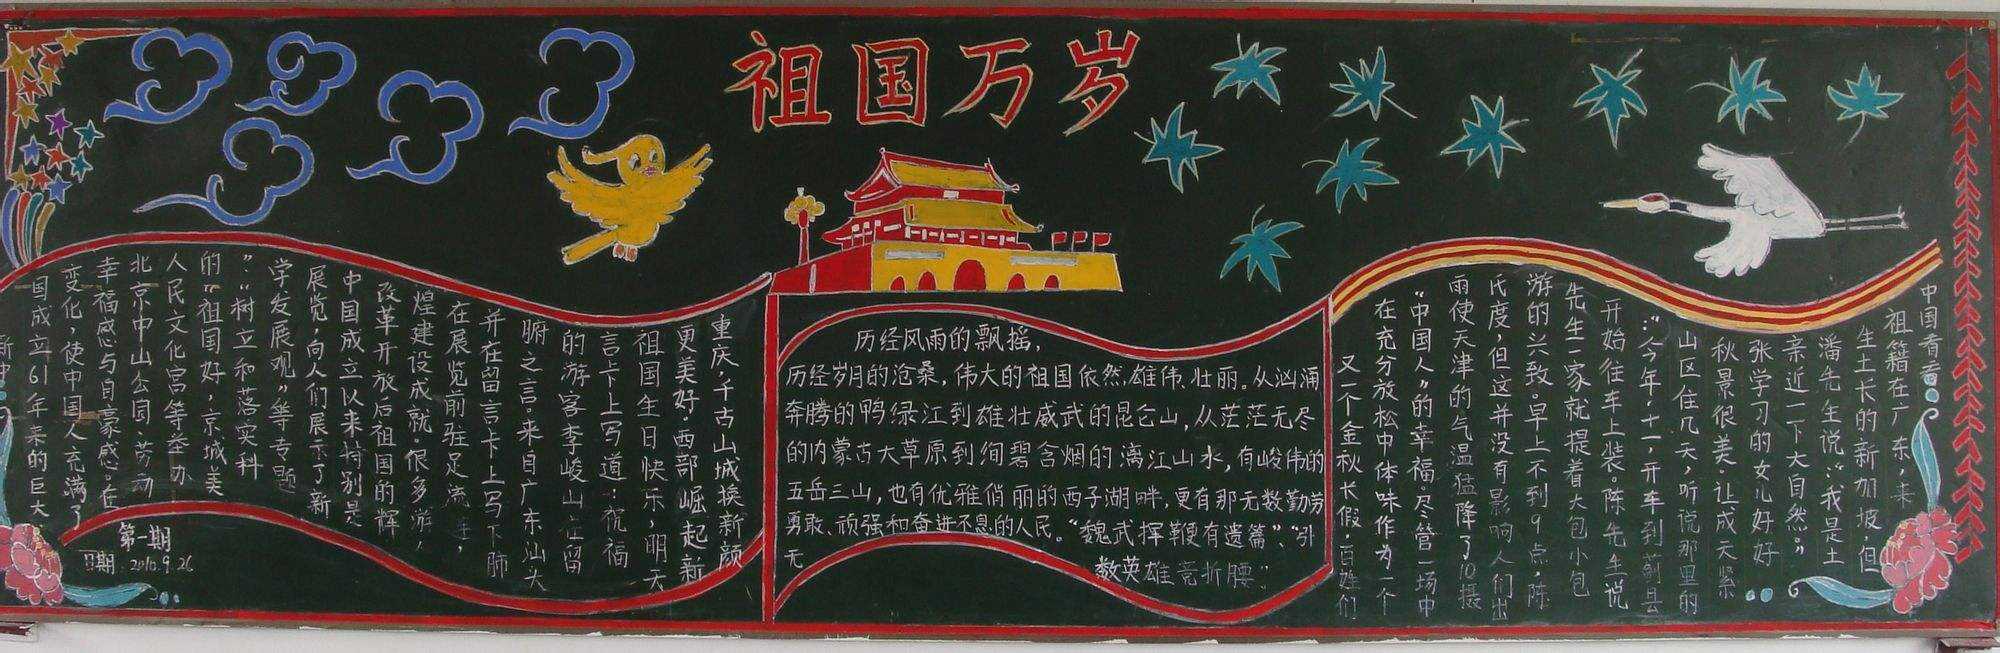 祖国万岁
新中
国成立61年来的巨大
变化,使中国人充满了
幸福感与自豪感。在
北京中山公园、劳动
人民文化宫等举办
的“祖国好,京城美
”:“树立和落实科
学发展观”等专题
展览,向人们展示了新
中国成立以来特别是
改革开放后祖国的辉
煌建设成就。很多游,
在展览前驻足流连,
并在留言卡上写下肺
腑之言。来自广东汕大
的游客李峻山在留
言卡上写道:祝福
祖国生日快乐,明天
更美好。西部崛起新
重庆,千古山城换新颜
第一期
日期:2010.9.26
历经风雨的飘摇,
历经岁月的沧桑,伟大的祖国依然雄伟、壮丽。从汹涌
奔腾的鸭绿江到雄壮威武的昆仑山,从茫茫无尽
的内蒙古大草原到绚碧含烟的漓江山水,有峻伟的
五岳三山,也有优雅俏丽的西子湖畔,更有那无数勤劳
勇敢、顽强和奋进不息的人民。“魏武挥鞭有遗篇”、“引
无
数英雄竞折腰”
又一个金秋长假,百姓们
在充分放松中体味作为一个
“中国人”的幸福。尽管一场中
雨使天津的气温猛降了10摄
氏度,但这并没有影响人们出
游的兴致。早上不到9点,陈
先生一家就提着大包小包
开始往车上装。陈先生说
“:“今年‘十一’,开车到蓟县
山区住几天,听说那里的
秋景很美。让成天紧
张学习的女儿好好
亲近一下大自然。”
潘先生说:“我是土
生土长的新加坡,但
祖籍在广东,来
中国看看